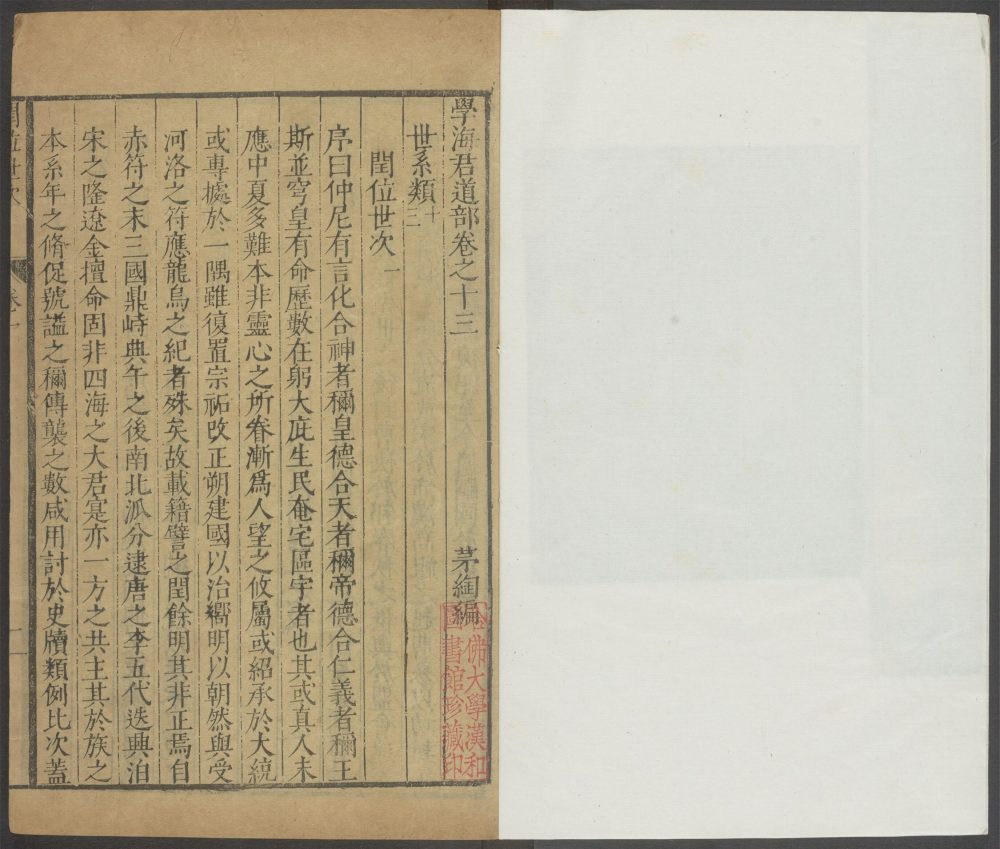 學海君道部卷之十三
茅綯編
哈佛大學漢和圖書館珍藏印
世系類十二
閏位世次一
序曰仲尼有言化合神者稱皇德合天者稱帝德合仁義者稱王
斯並穹皇有命歷數在躬大庇生民奄宅區宇者也其或真人未
應中夏多難本非靈心之所眷漸爲人望之攸屬或紹承於大統
或專據於一隅雖復置宗祏改正朔建國以治嚮明以朝然與受
河洛之符應龍鳥之紀者殊矣故載籍譬之閏餘明其非正焉自
赤符之末三國鼎峙典午之後南北派分逮唐之季五代迭興洎
宋之隆遼金擅命固非四海之大君寔亦一方之共主其於族之
本系年之脩促號謚之稱傳襲之數咸用討於史牘類例比次蓋
閏位世次